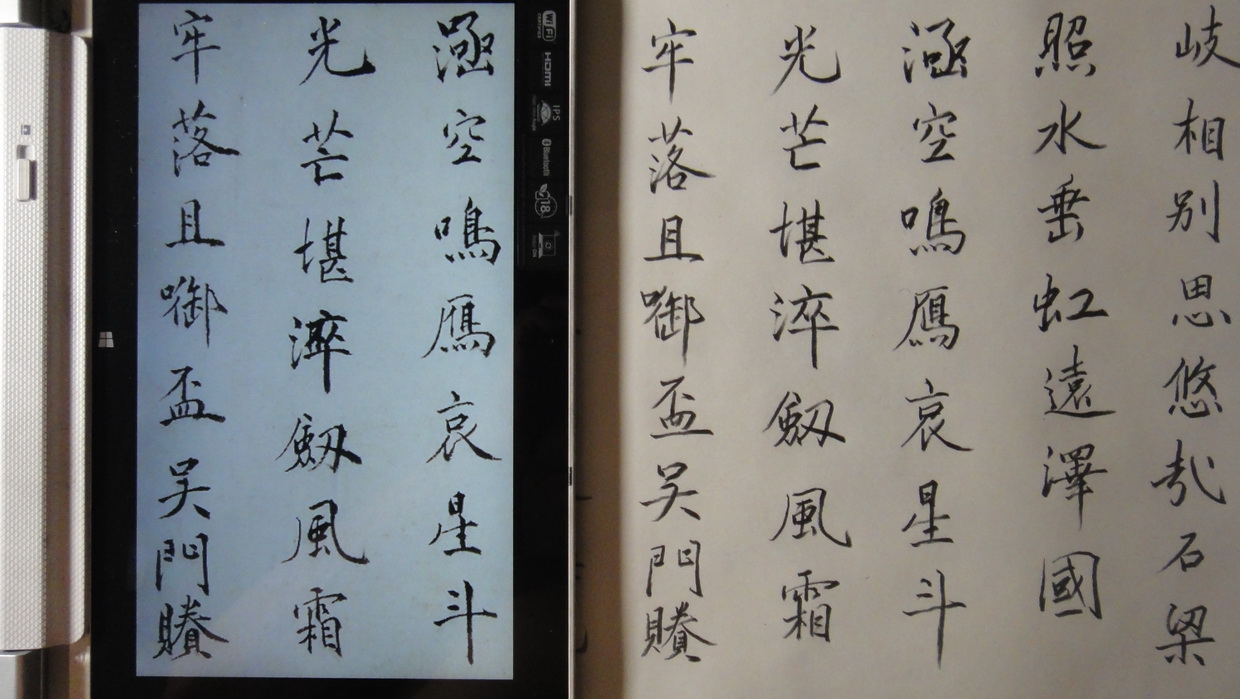 岐相別思悠哉石梁
照水垂虹遠澤國
涵空鳴鴈哀星斗
光芒堪淬劒風霜
牢落且啣盃吳門賸
WiFi
HDMI
IPS
Bluetooth
涵空鳴鴈哀星斗
光芒堪淬劒風霜
牢落且啣盃吳門賸